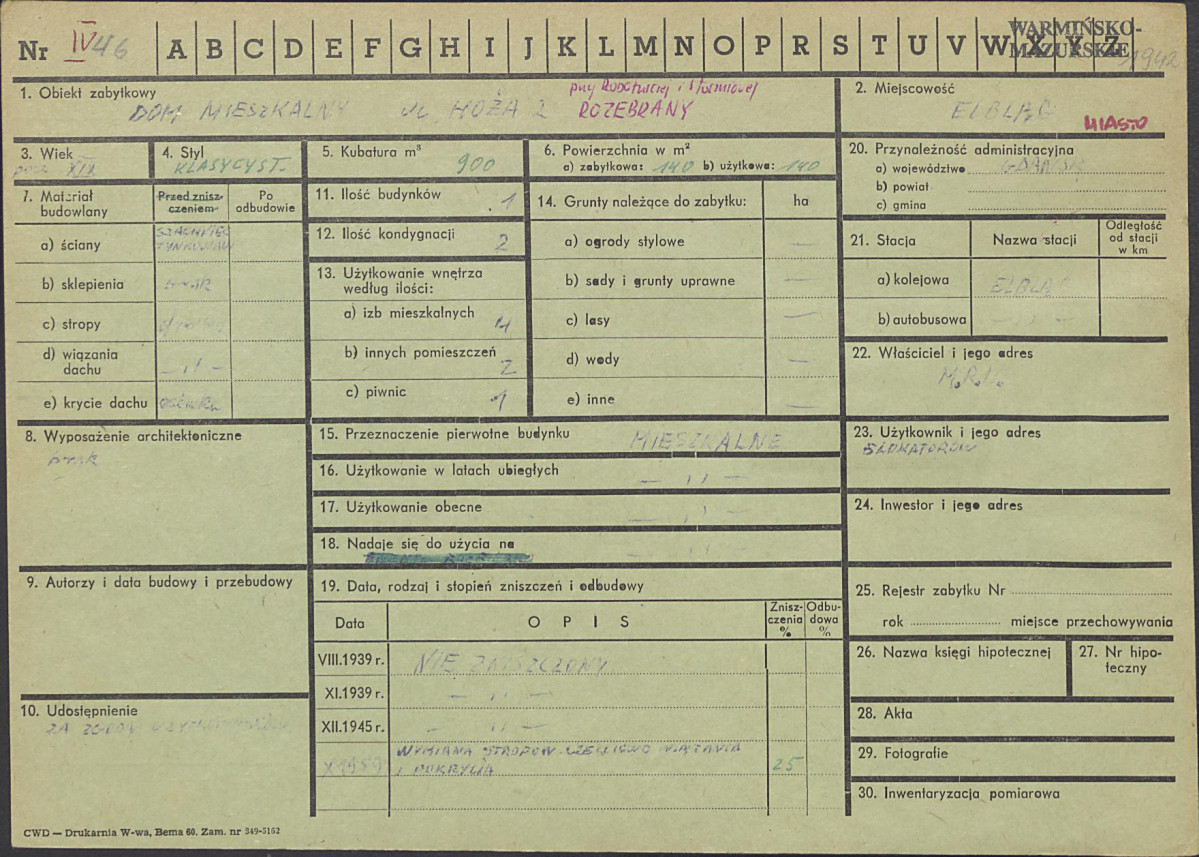 Nr IV 46 A B C D E F G H I J K L M N O P R S T U V W X Y Z
WARMIŃSKO-
MAZURSKIE
1. Obiekt zabytkowy
DOM MIESZKALNY ul. HOŻA 2 ROZEBRANY
2. Miejscowość
ELBLĄG
MIASTO
3. Wiek
XIX
4. Styl
KLASYCYST.
5. Kubatura m³
900
6. Powierzchnia w m²
a) zabytkowa: 140 b) użytkowa: 140
20. Przynależność administracyjna
a) województwo GDAŃSK
b) powiat
c) gmina
7. Materiał budowlany
Przed zniszczeniem
Po odbudowie
a) ściany
b) sklepienia brak
c) stropy
d) wiązania dachu — „ —
e) krycie dachu
11. Ilość budynków 1
12. Ilość kondygnacji 2
13. Użytkowanie wnętrza
według ilości:
a) izb mieszkalnych 4
b) innych pomieszczeń 2
c) piwnic 1
14. Grunty należące do zabytku: ha
a) ogrody stylowe —
b) sady i grunty uprawne —
c) lasy —
d) wody —
e) inne —
21. Stacja
Nazwa stacji
Odległość
od stacji
w km
a) kolejowa ELBLĄG
b) autobusowa — „ —
22. Właściciel i jego adres
M.R.N.
8. Wyposażenie architektoniczne
brak
15. Przeznaczenie pierwotne budynku MIESZKALNE
16. Użytkowanie w latach ubiegłych — „ —
17. Użytkowanie obecne — „ —
18. Nadaje się do użycia na — „ —
23. Użytkownik i jego adres
24. Inwestor i jego adres
9. Autorzy i data budowy i przebudowy
19. Data, rodzaj i stopień zniszczeń i odbudowy
Data
OPIS
Znisz-
czenia
%
Odbu-
dowa
%
VIII.1939 r. NIE ZNISZCZONY
XI.1939 r. — „ —
XII.1945 r. — „ —
X 1959 WYMIANA STROPÓW CZĘŚCIOWO WIĄZANIA
I POKRYCIA 25
25. Rejestr zabytku Nr
rok miejsce przechowywania
26. Nazwa księgi hipotecznej
27. Nr hipo-
teczny
10. Udostępnienie
ZA ZGODĄ
28. Akta
29. Fotografie
30. Inwentaryzacja pomiarowa
CWD — Drukarnia W-wa, Bema 60. Zam. nr 349-5162